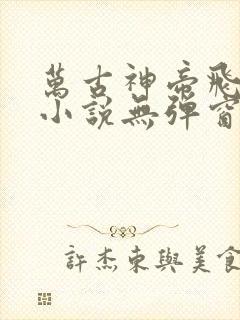 萬古神帝飛
小說無彈窗
許杰東與美食